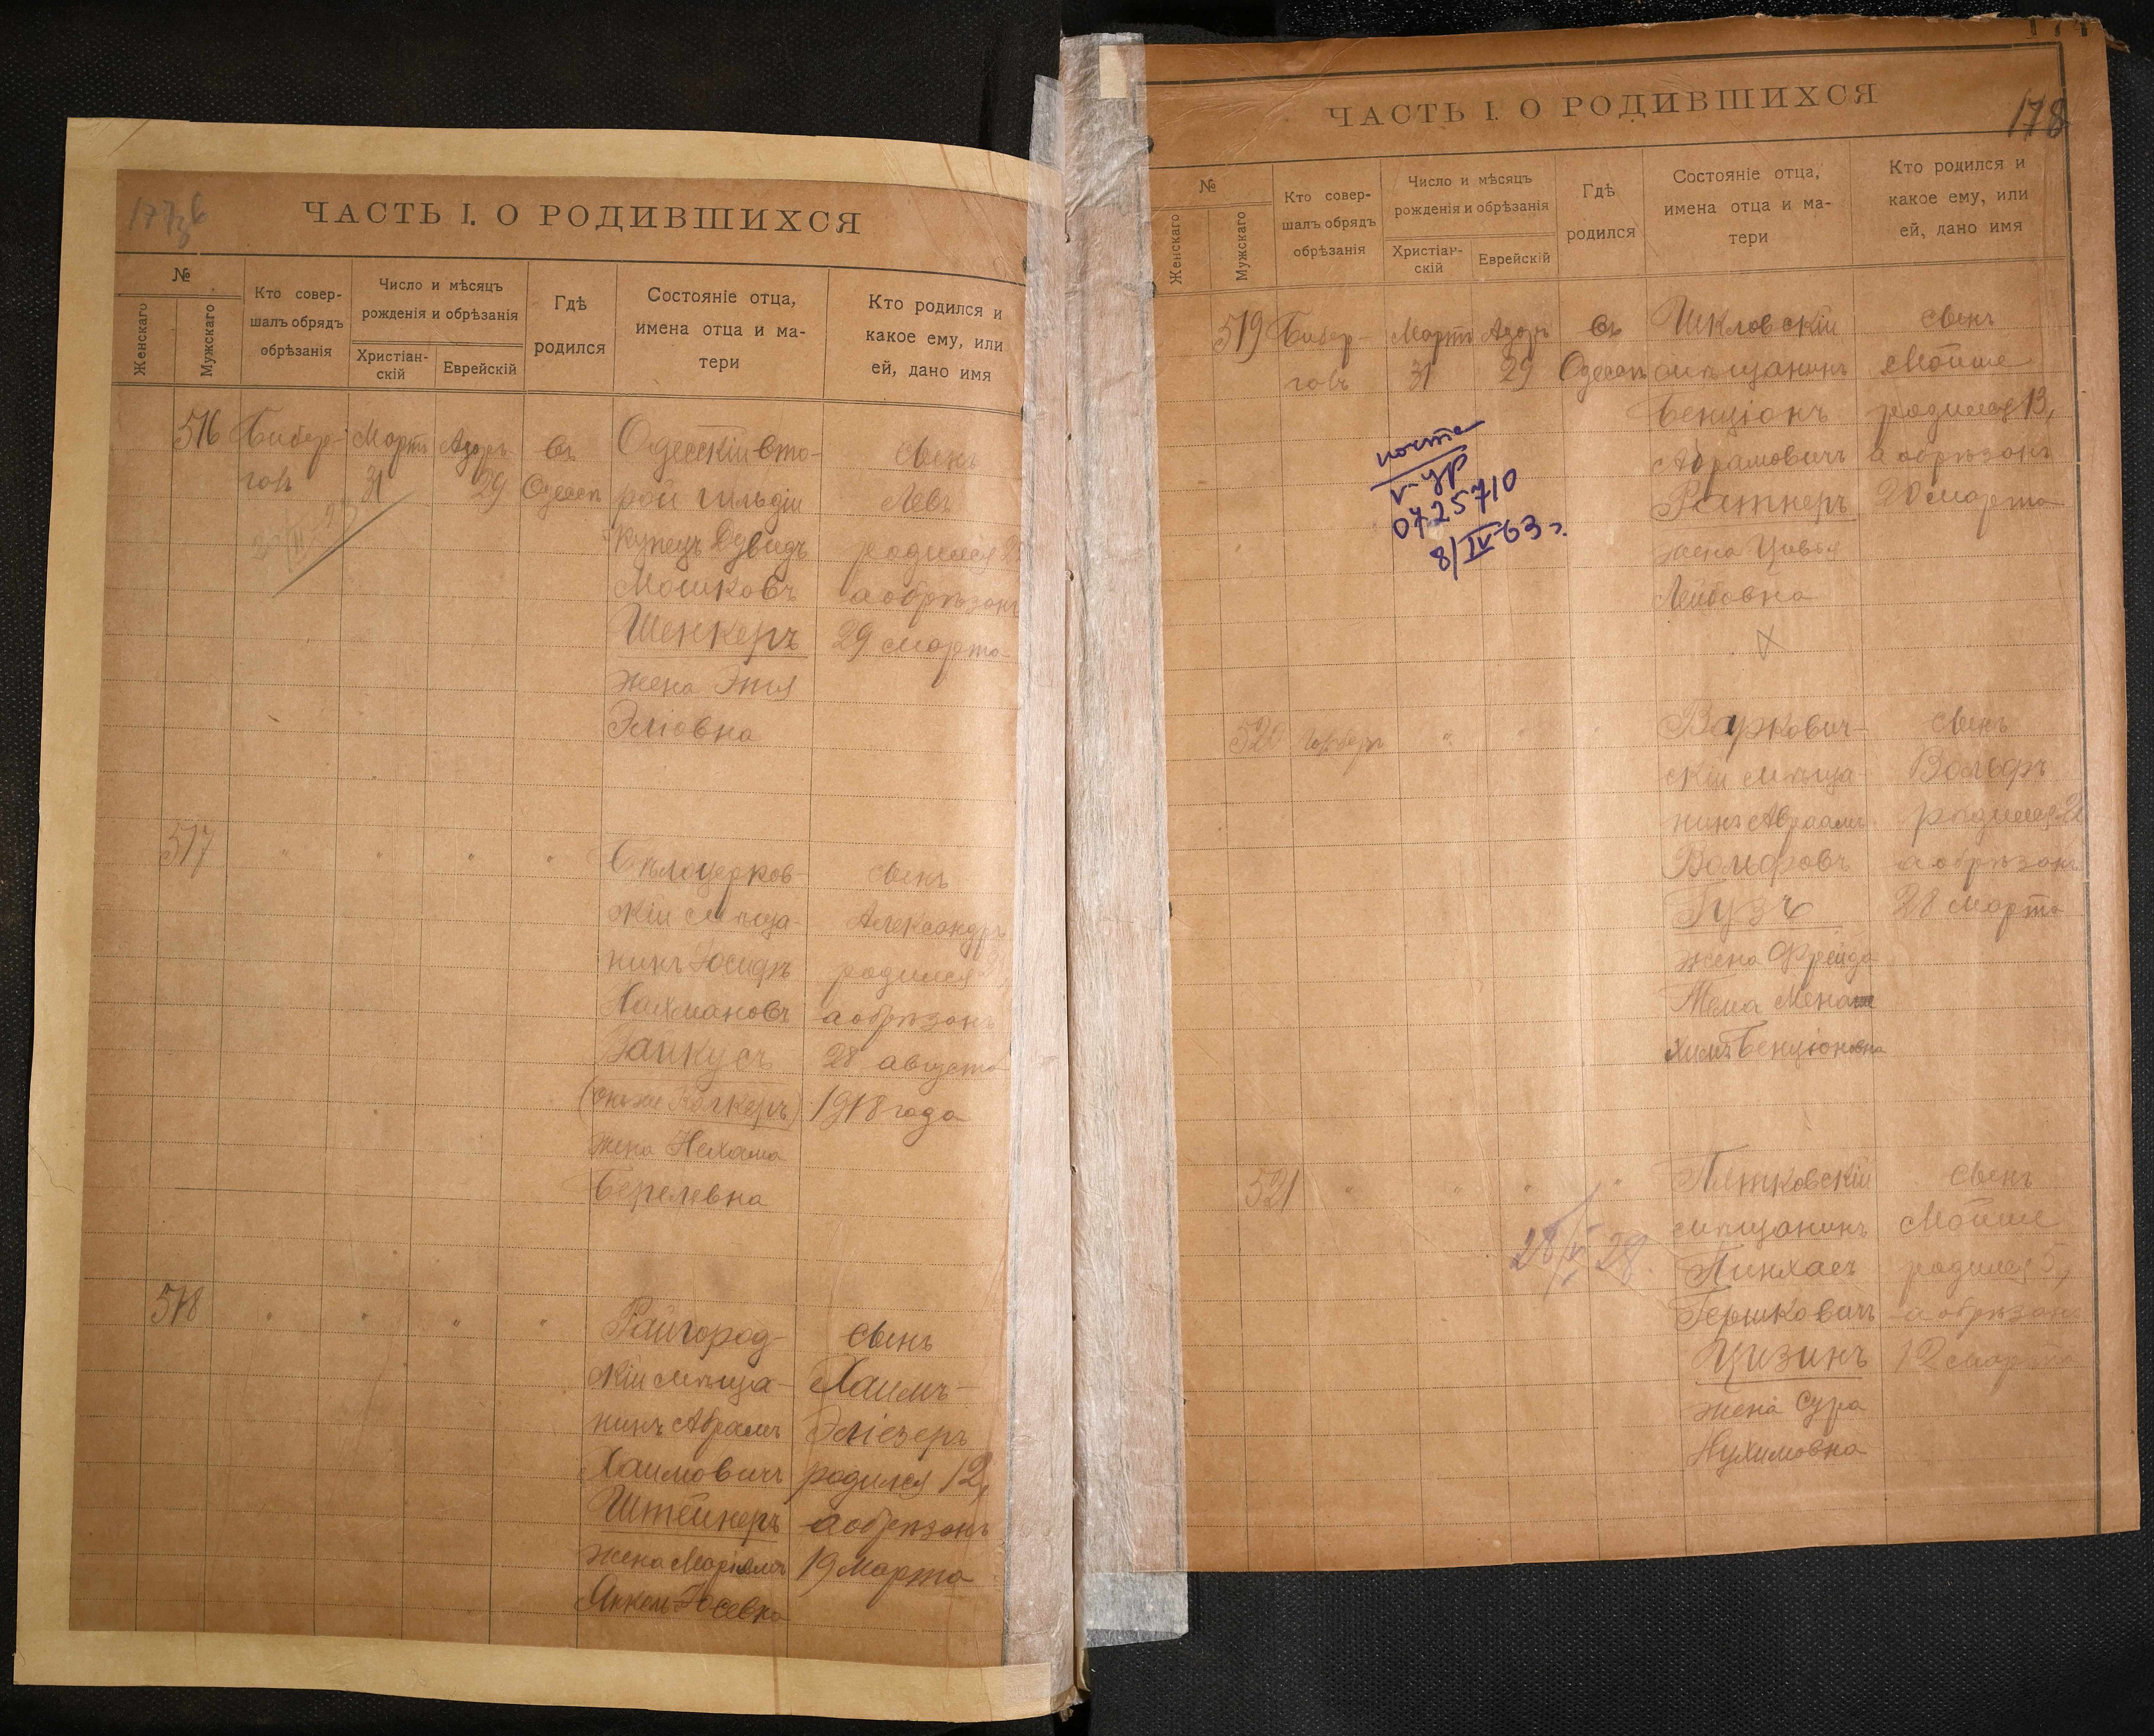 ЧАСТЬ I. О РОДИВШИХСЯ
№
Женскаго
Мужскаго
Кто совер-
шалъ обрядъ
обрѣзанія
Число и мѣсяцъ
рожденія и обрѣзанія
Христіан-
скій
Еврейскій
Гдѣ
родился
Состояніе отца,
имена отца и ма-
тери
Кто родился и
какое ему, или
ей, дано имя
516
Бибер-
галъ
Мартъ
31
Адоръ
29
въ
Одессѣ
Одесскій вто-
рой гильдіи
купецъ Дувидъ
Мошковъ
Шенкеръ
жена Эня
Эліовна
сынъ
Левъ
родился
а обрѣзанъ
29 марта
517
" " " "
Бѣлоцерков-
скій мѣща-
нинъ Іосифъ
Нахмановъ
(онъ же
жена Нехама
Берелевна
сынъ
Александръ
родился
а обрѣзанъ
28 августа
1918 года
518
" " " "
Райгород-
скій мѣща-
нинъ Абрамъ
Хаимовичъ
Штейнеръ
жена Маріямъ
Янкель-Іосевна
сынъ
Хаимъ-
Эліезеръ
родился 12,
а обрѣзанъ
19 марта
ЧАСТЬ I. О РОДИВШИХСЯ
178
№
Женскаго
Мужскаго
Кто совер-
шалъ обрядъ
обрѣзанія
Число и мѣсяцъ
рожденія и обрѣзанія
Христіан-
скій
Еврейскій
Гдѣ
родился
Состояніе отца,
имена отца и ма-
тери
Кто родился и
какое ему, или
ей, дано имя
519
Бибер-
галъ
Мартъ
31
Адоръ
29
въ
Одессѣ
Шкловскій
мѣщанинъ
Бенціонъ
Абрамовичъ
Ратнеръ
жена Цивья
Лейбовна
сынъ
Мойше
родился 13,
а обрѣзанъ
20 марта
0725710
8/IV-63 г.
520
" " "
Варкович-
скій мѣща-
нинъ Авраамъ
Вольфовъ
Гузъ
жена Фрейда
сынъ
Вольфъ
родился 2
а обрѣзанъ
28 марта
521
" " " "
Пятковскій
мѣщанинъ
Пинхасъ
Гершковичъ
Цизинъ
жена Сура
Нухимовна
сынъ
Мойше
родился 5,
а обрѣзанъ
12 марта